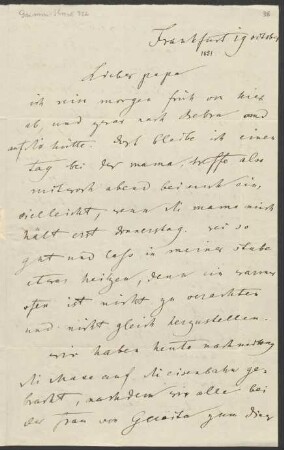 Frankfurt 19 october
1851
Lieber papa
ich reise morgen früh von hier
ab, und zwar nach Bebra und
auf die hütte. dort bleibe ich einen
tag bei der mama, treffe also
mitwoch abend bei euch ein,
vielleicht, wenn die mama mich
hält erst donnerstag. sei so
gut und lass in meiner stube
etwas heitzen, denn ein warmer
ofen ist nicht zu verachten
und nicht gleich herzustellen.
wir haben heute nachmittag
die Maxe auf die eisenbahn ge
bracht, nachdem wir alle bei
der frau von Guaita zum diner